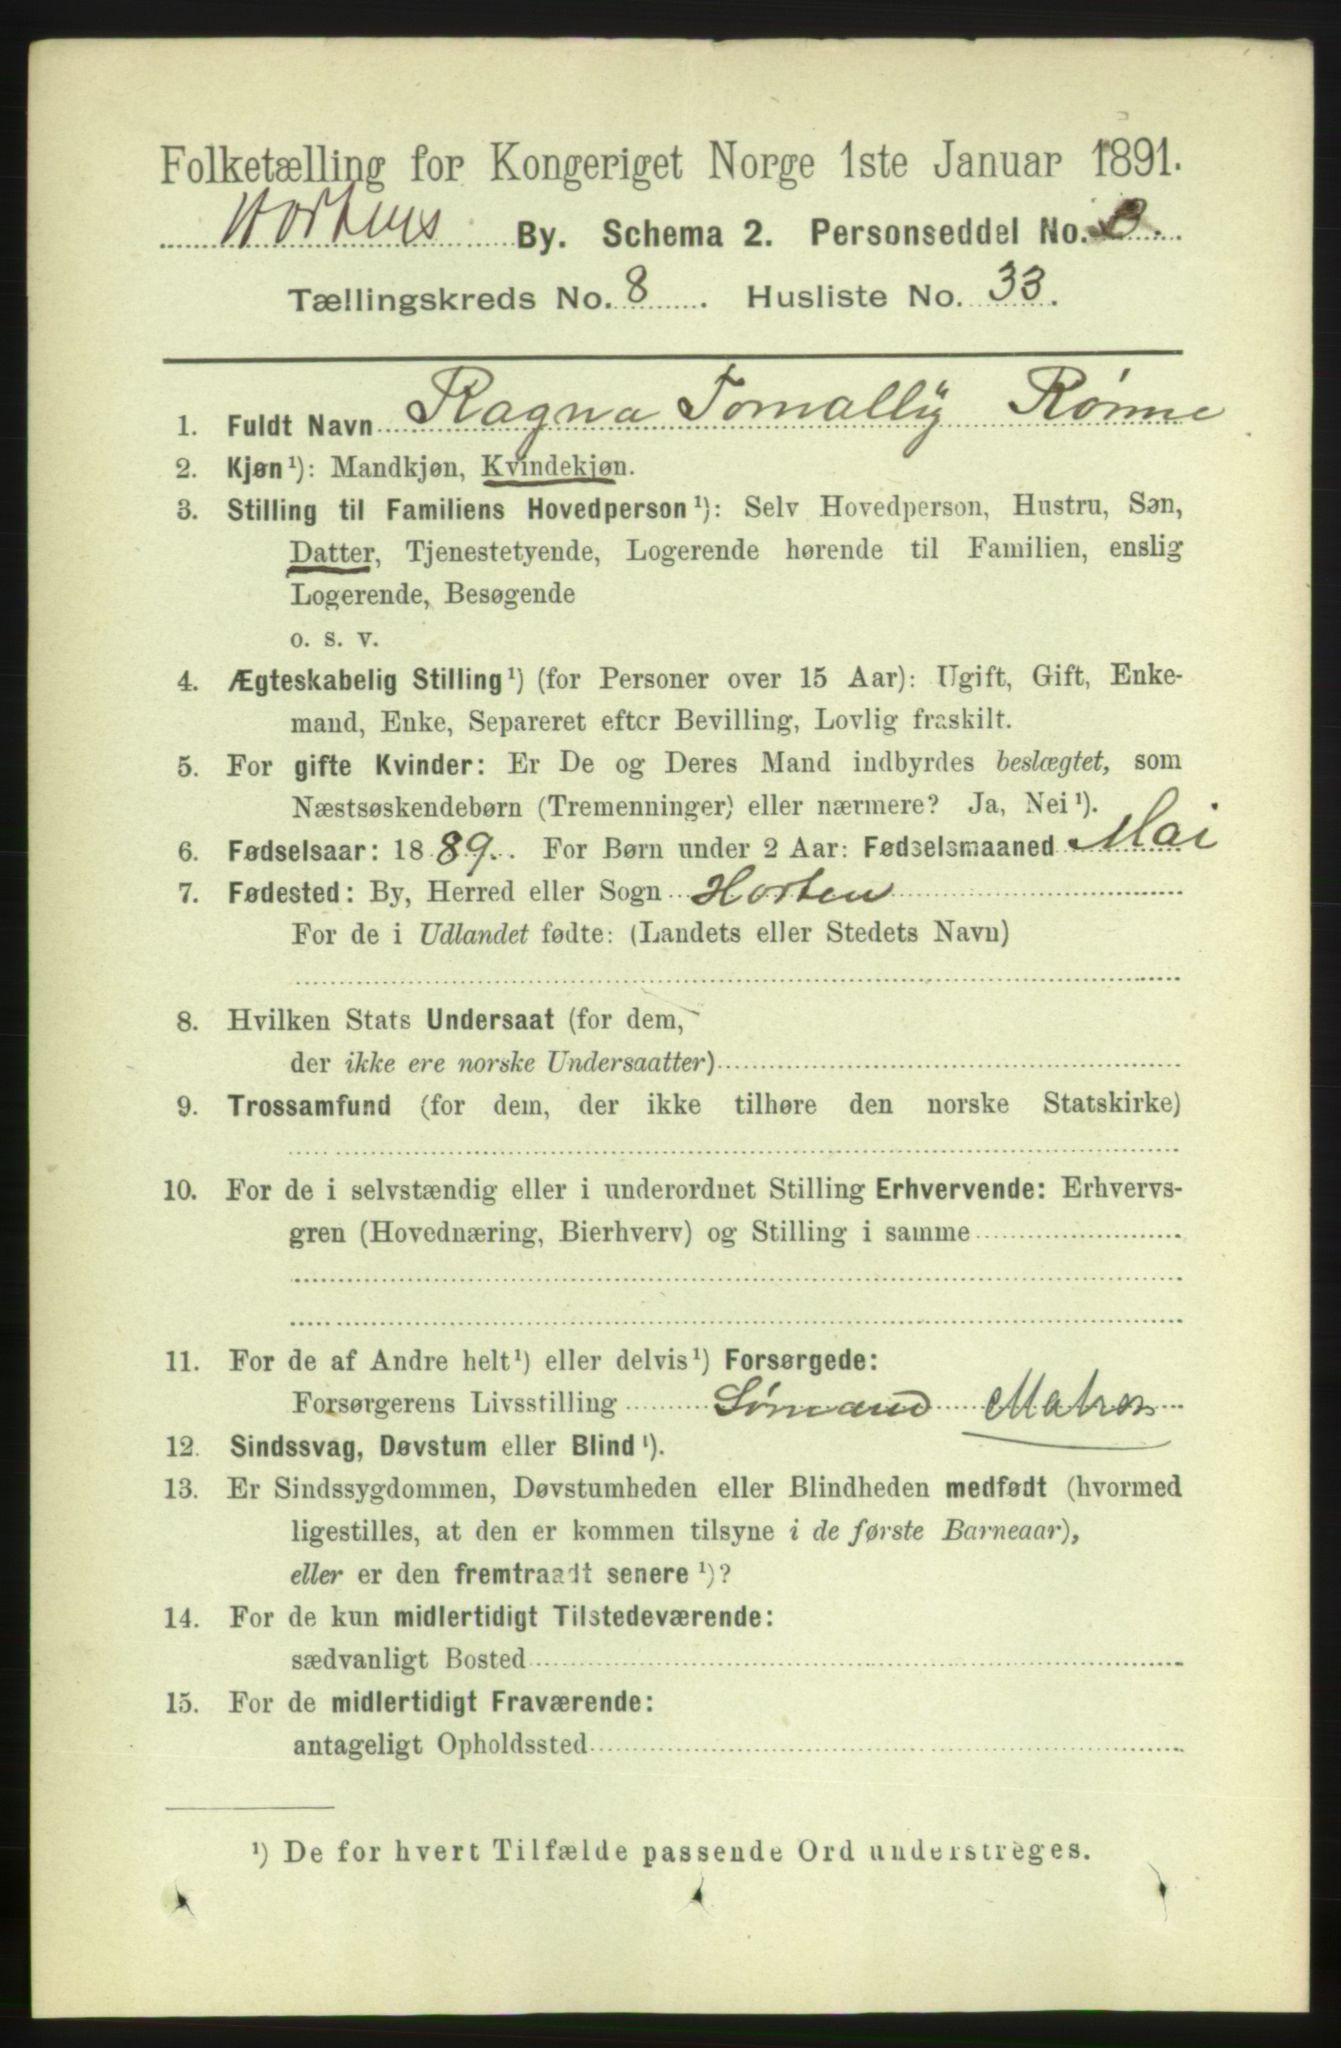 Folketælling for Kongeriget Norge 1ste Januar 1891.
Hortens By. Schema 2. Personseddel No. 3.
Tællingskreds No. 8. Husliste No. 33.
1. Fuldt Navn Ragna Tomally Rønne
2. Kjøn¹): Mandkjøn, Kvindekjøn.
3. Stilling til Familiens Hovedperson¹): Selv Hovedperson, Hustru, Søn,
Datter, Tjenestetyende, Logerende hørende til Familien, enslig
Logerende, Besøgende
o. s. v.
4. Ægteskabelig Stilling¹) (for Personer over 15 Aar): Ugift, Gift, Enke-
mand, Enke, Separeret efter Bevilling, Lovlig fraskilt.
5. For gifte Kvinder: Er De og Deres Mand indbyrdes beslægtet, som
Næstsøskendebørn (Tremenninger) eller nærmere? Ja, Nei¹).
6. Fødselsaar: 1889. For Børn under 2 Aar: Fødselsmaaned Mai
7. Fødested: By, Herred eller Sogn Horten
For de i Udlandet fødte: (Landets eller Stedets Navn)
8. Hvilken Stats Undersaat (for dem,
der ikke ere norske Undersaatter)
9. Trossamfund (for dem, der ikke tilhøre den norske Statskirke)
10. For de i selvstændig eller i underordnet Stilling Erhvervende: Erhvervs-
gren (Hovednæring, Bierhverv) og Stilling i samme
11. For de af Andre helt¹) eller delvis¹) Forsørgede:
Forsørgerens Livsstilling Sømand Matros
12. Sindssvag, Døvstum eller Blind¹).
13. Er Sindssygdommen, Døvstumheden eller Blindheden medfødt (hvormed
ligestilles, at den er kommen tilsyne i de første Barneaar),
eller er den fremtraadt senere¹)?
14. For de kun midlertidigt Tilstedeværende:
sædvanligt Bosted
15. For de midlertidigt Fraværende:
antageligt Opholdssted
¹) De for hvert Tilfælde passende Ord understreges.